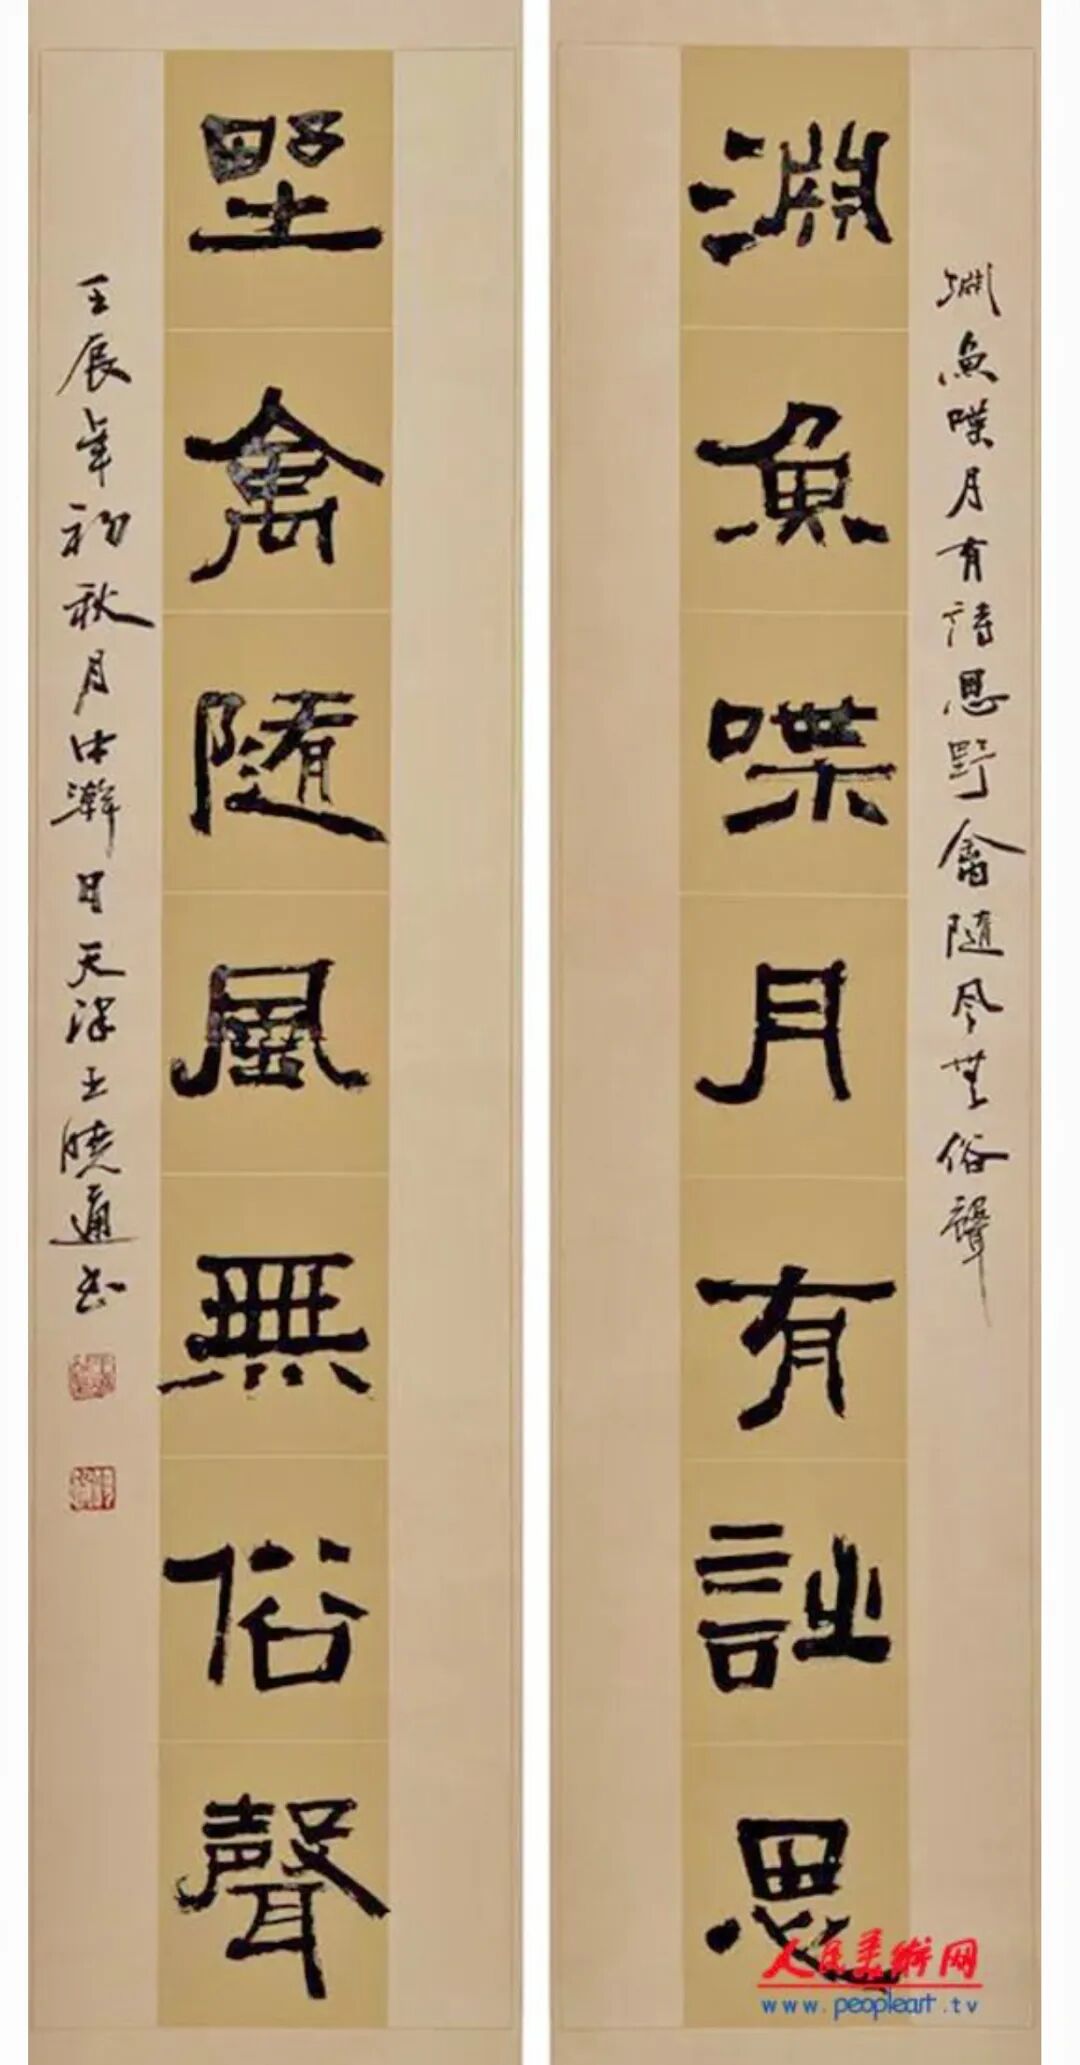 淵魚喋月有詩思野禽隨風無俗聲
淵魚喋月有詩思
野禽隨風無俗聲
壬辰年初秋月中澣日天津王曉通書
人民美術网
www.peopleart.tv